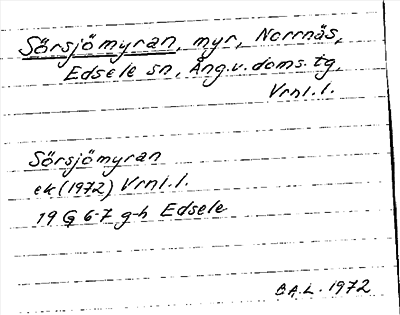 Sörsjömyran, myr, Norrnäs,
Edsele sn, Ång.v.doms.tg,
Vrnl.l.
Sörsjömyran
ek (1972) Vrnl.l.
19 G 6-7 g-h Edsele
B.A.L. 1972